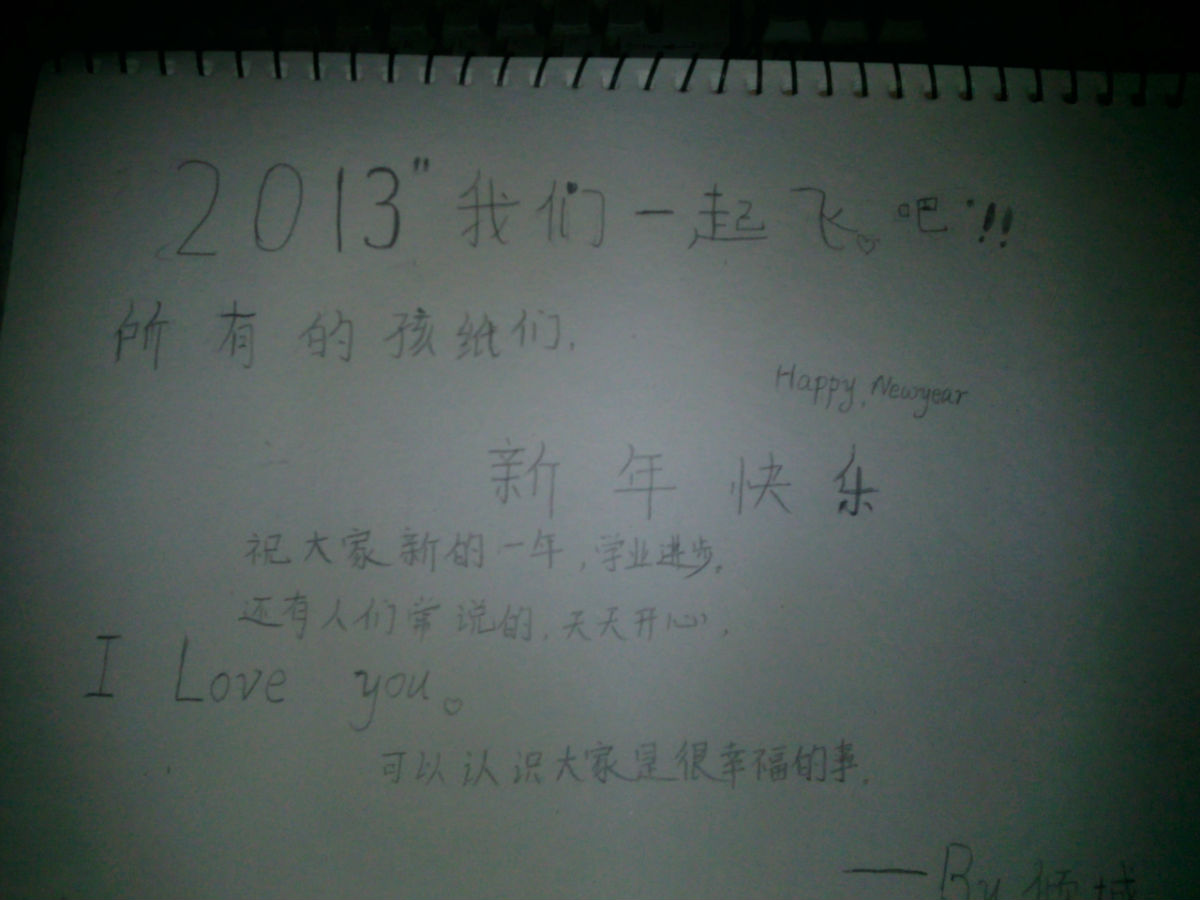 2013" 我们一起飞♡吧"!!
所有的孩纸们.
Happy Newyear
新年快乐
祝大家新的一年,学业进步。
还有人们常说的.天天开心.
I Love you♡
可以认识大家是很幸福的事.
——By 倾城